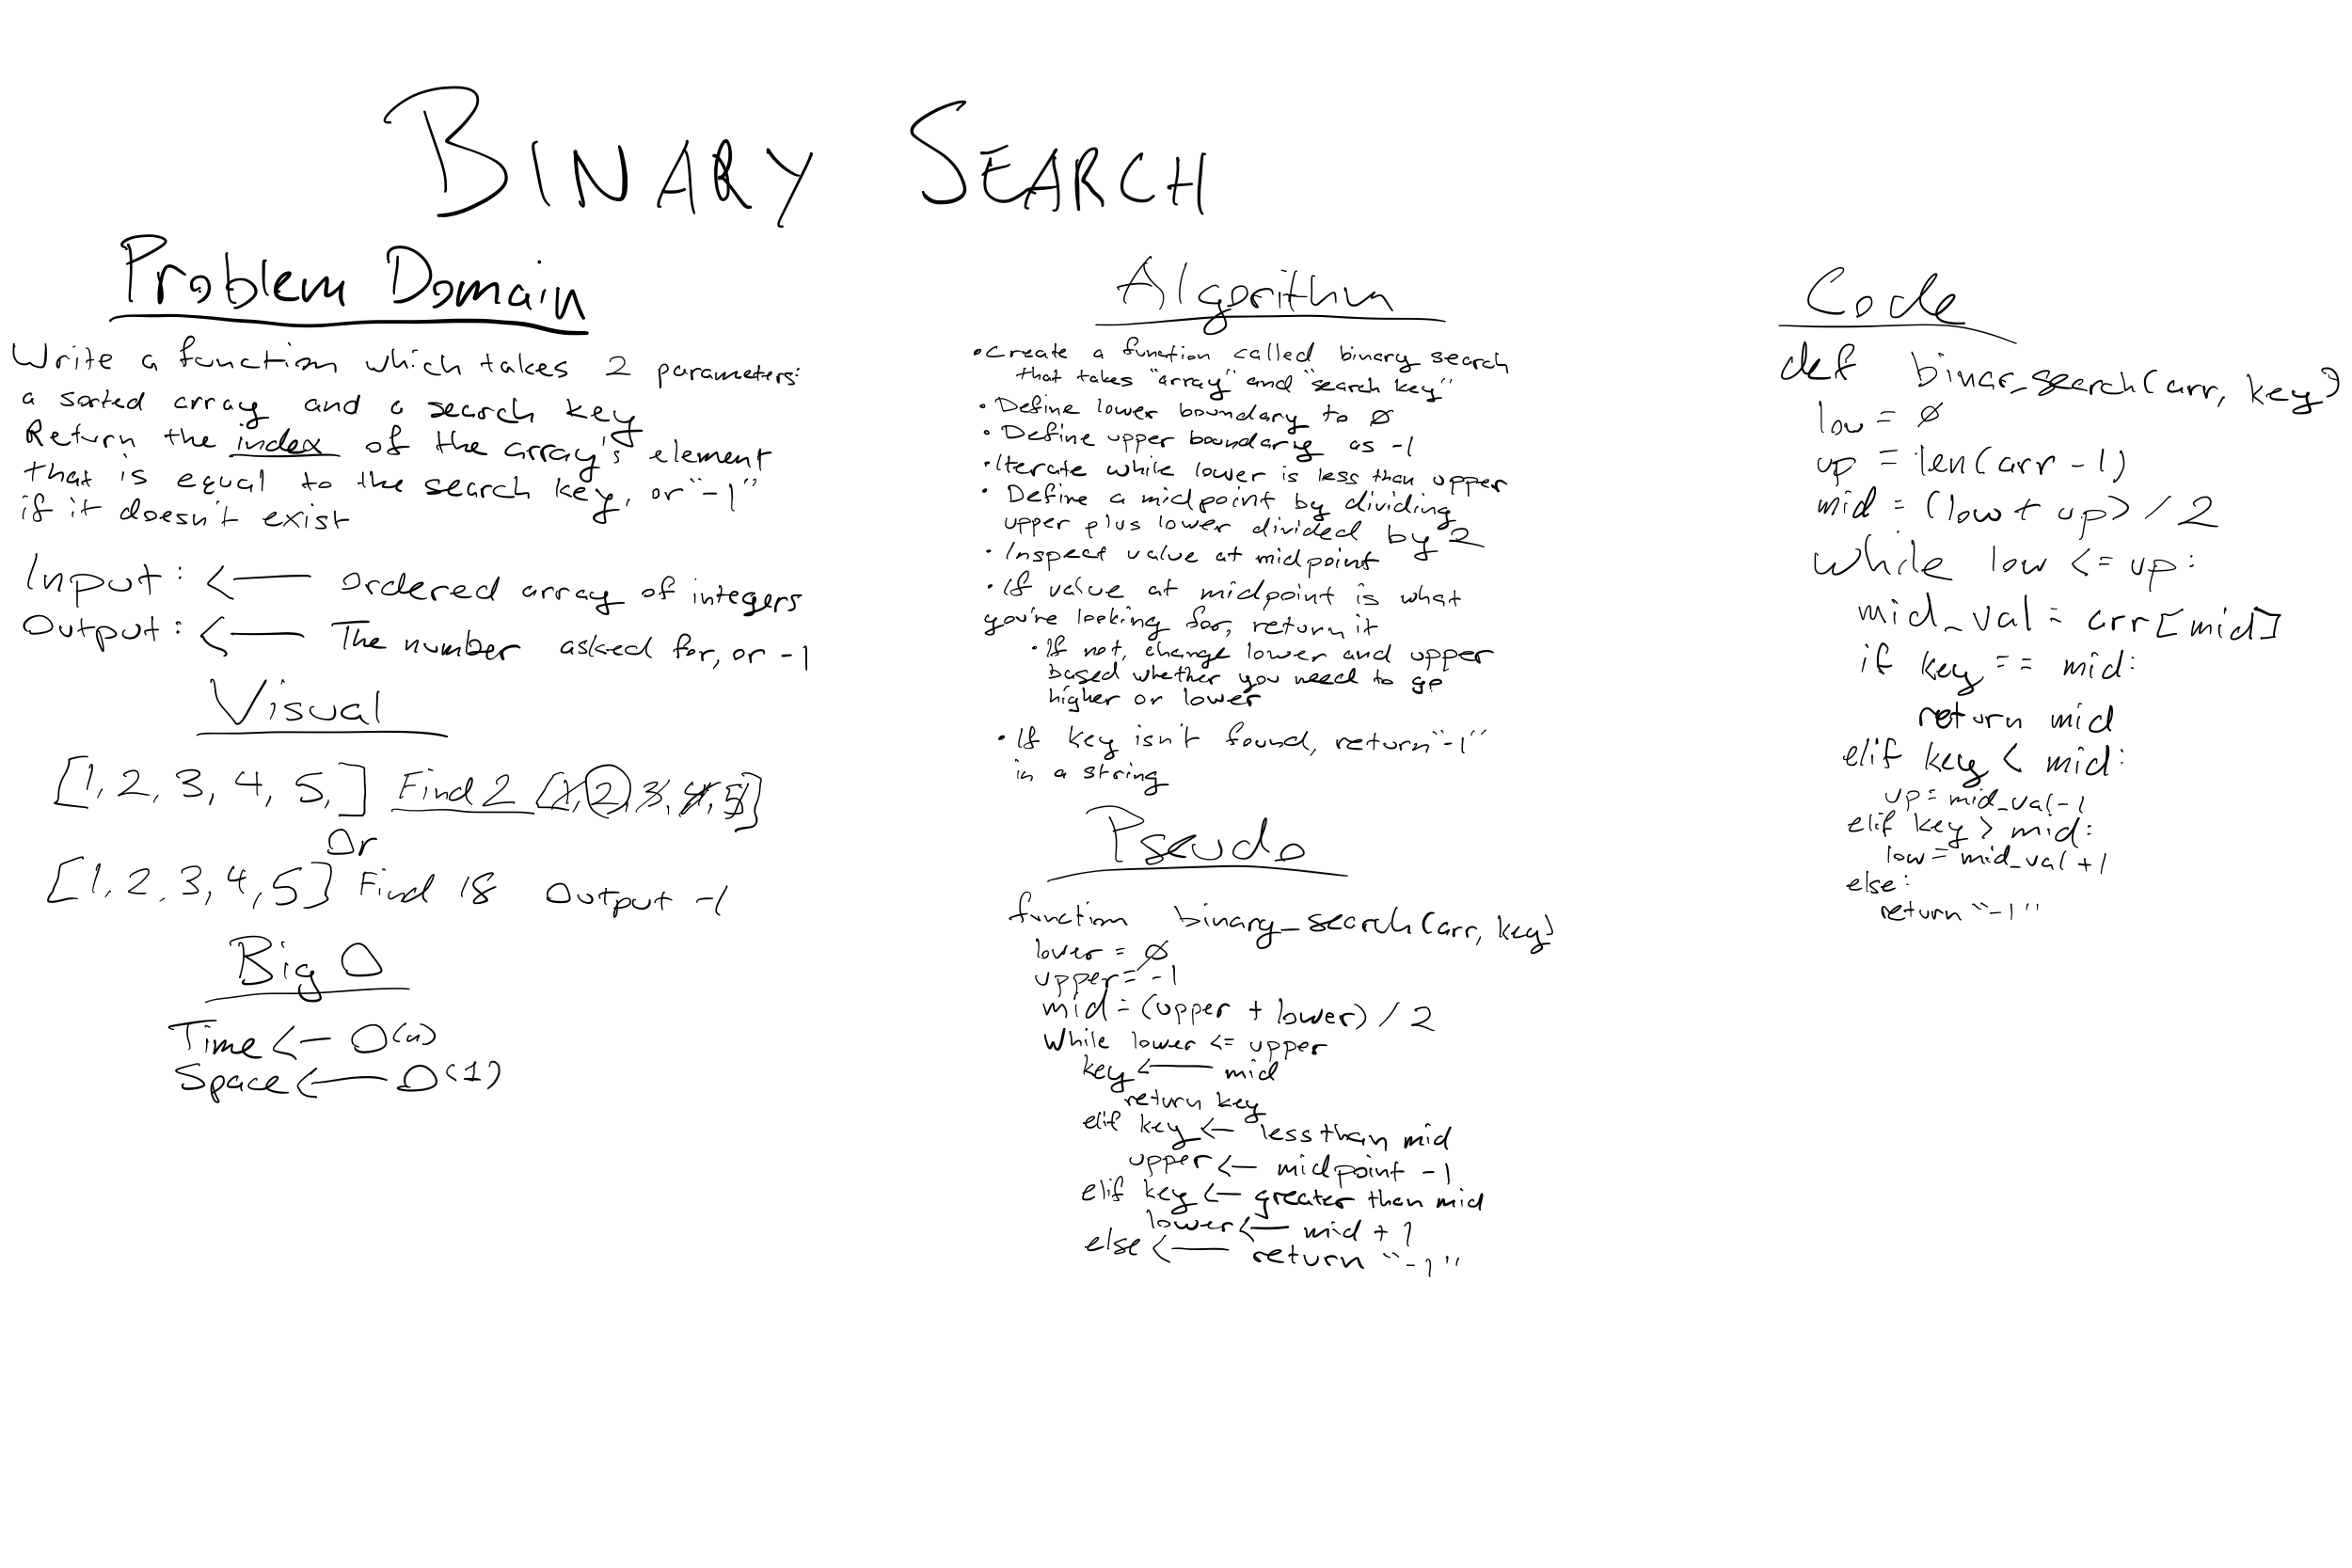 BINARY SEARCH
Problem Domain
Write a function which takes 2 parameters:
a sorted array and a search key
Return the index of the array's element
that is equal to the search key, or "-1"
if it doesn't exist
Input: <— ordered array of integers
Output: <— The number asked for, or -1
Visual
[1, 2, 3, 4, 5,] Find 2 [1, 2, 3, 4, 5]
Or
[1, 2, 3, 4, 5] Find 18 Output -1
Big O
Time <— O(n)
Space <— O(1)
Algorithm
• Create a function called binary search
that takes "array" and "search key"
• Define lower boundary to Ø
• Define upper boundary as -1
• Iterate while lower is less than upper
• Define a midpoint by dividing
upper plus lower divided by 2
• Inspect value at midpoint
• If value at midpoint is what
you're looking for, return it
• If not, change lower and upper
based whether you need to go
higher or lower
• If key isn't found, return "-1"
in a string
Pseudo
function binary_search(arr, key)
lower = Ø
upper = -1
mid = (upper + lower) / 2
While lower <= upper
key <— mid
return key
elif key <— less than mid
upper <— midpoint -1
elif key <— greater than mid
lower <— mid + 1
else <— return "-1"
Code
def binar_search(arr, key)
low = Ø
up = len(arr - 1)
mid = (low + up) / 2
while low <= up:
mid_val = arr[mid]
if key == mid:
return mid
elif key < mid:
up = mid_val - 1
elif key > mid:
low = mid_val + 1
else:
return "-1"